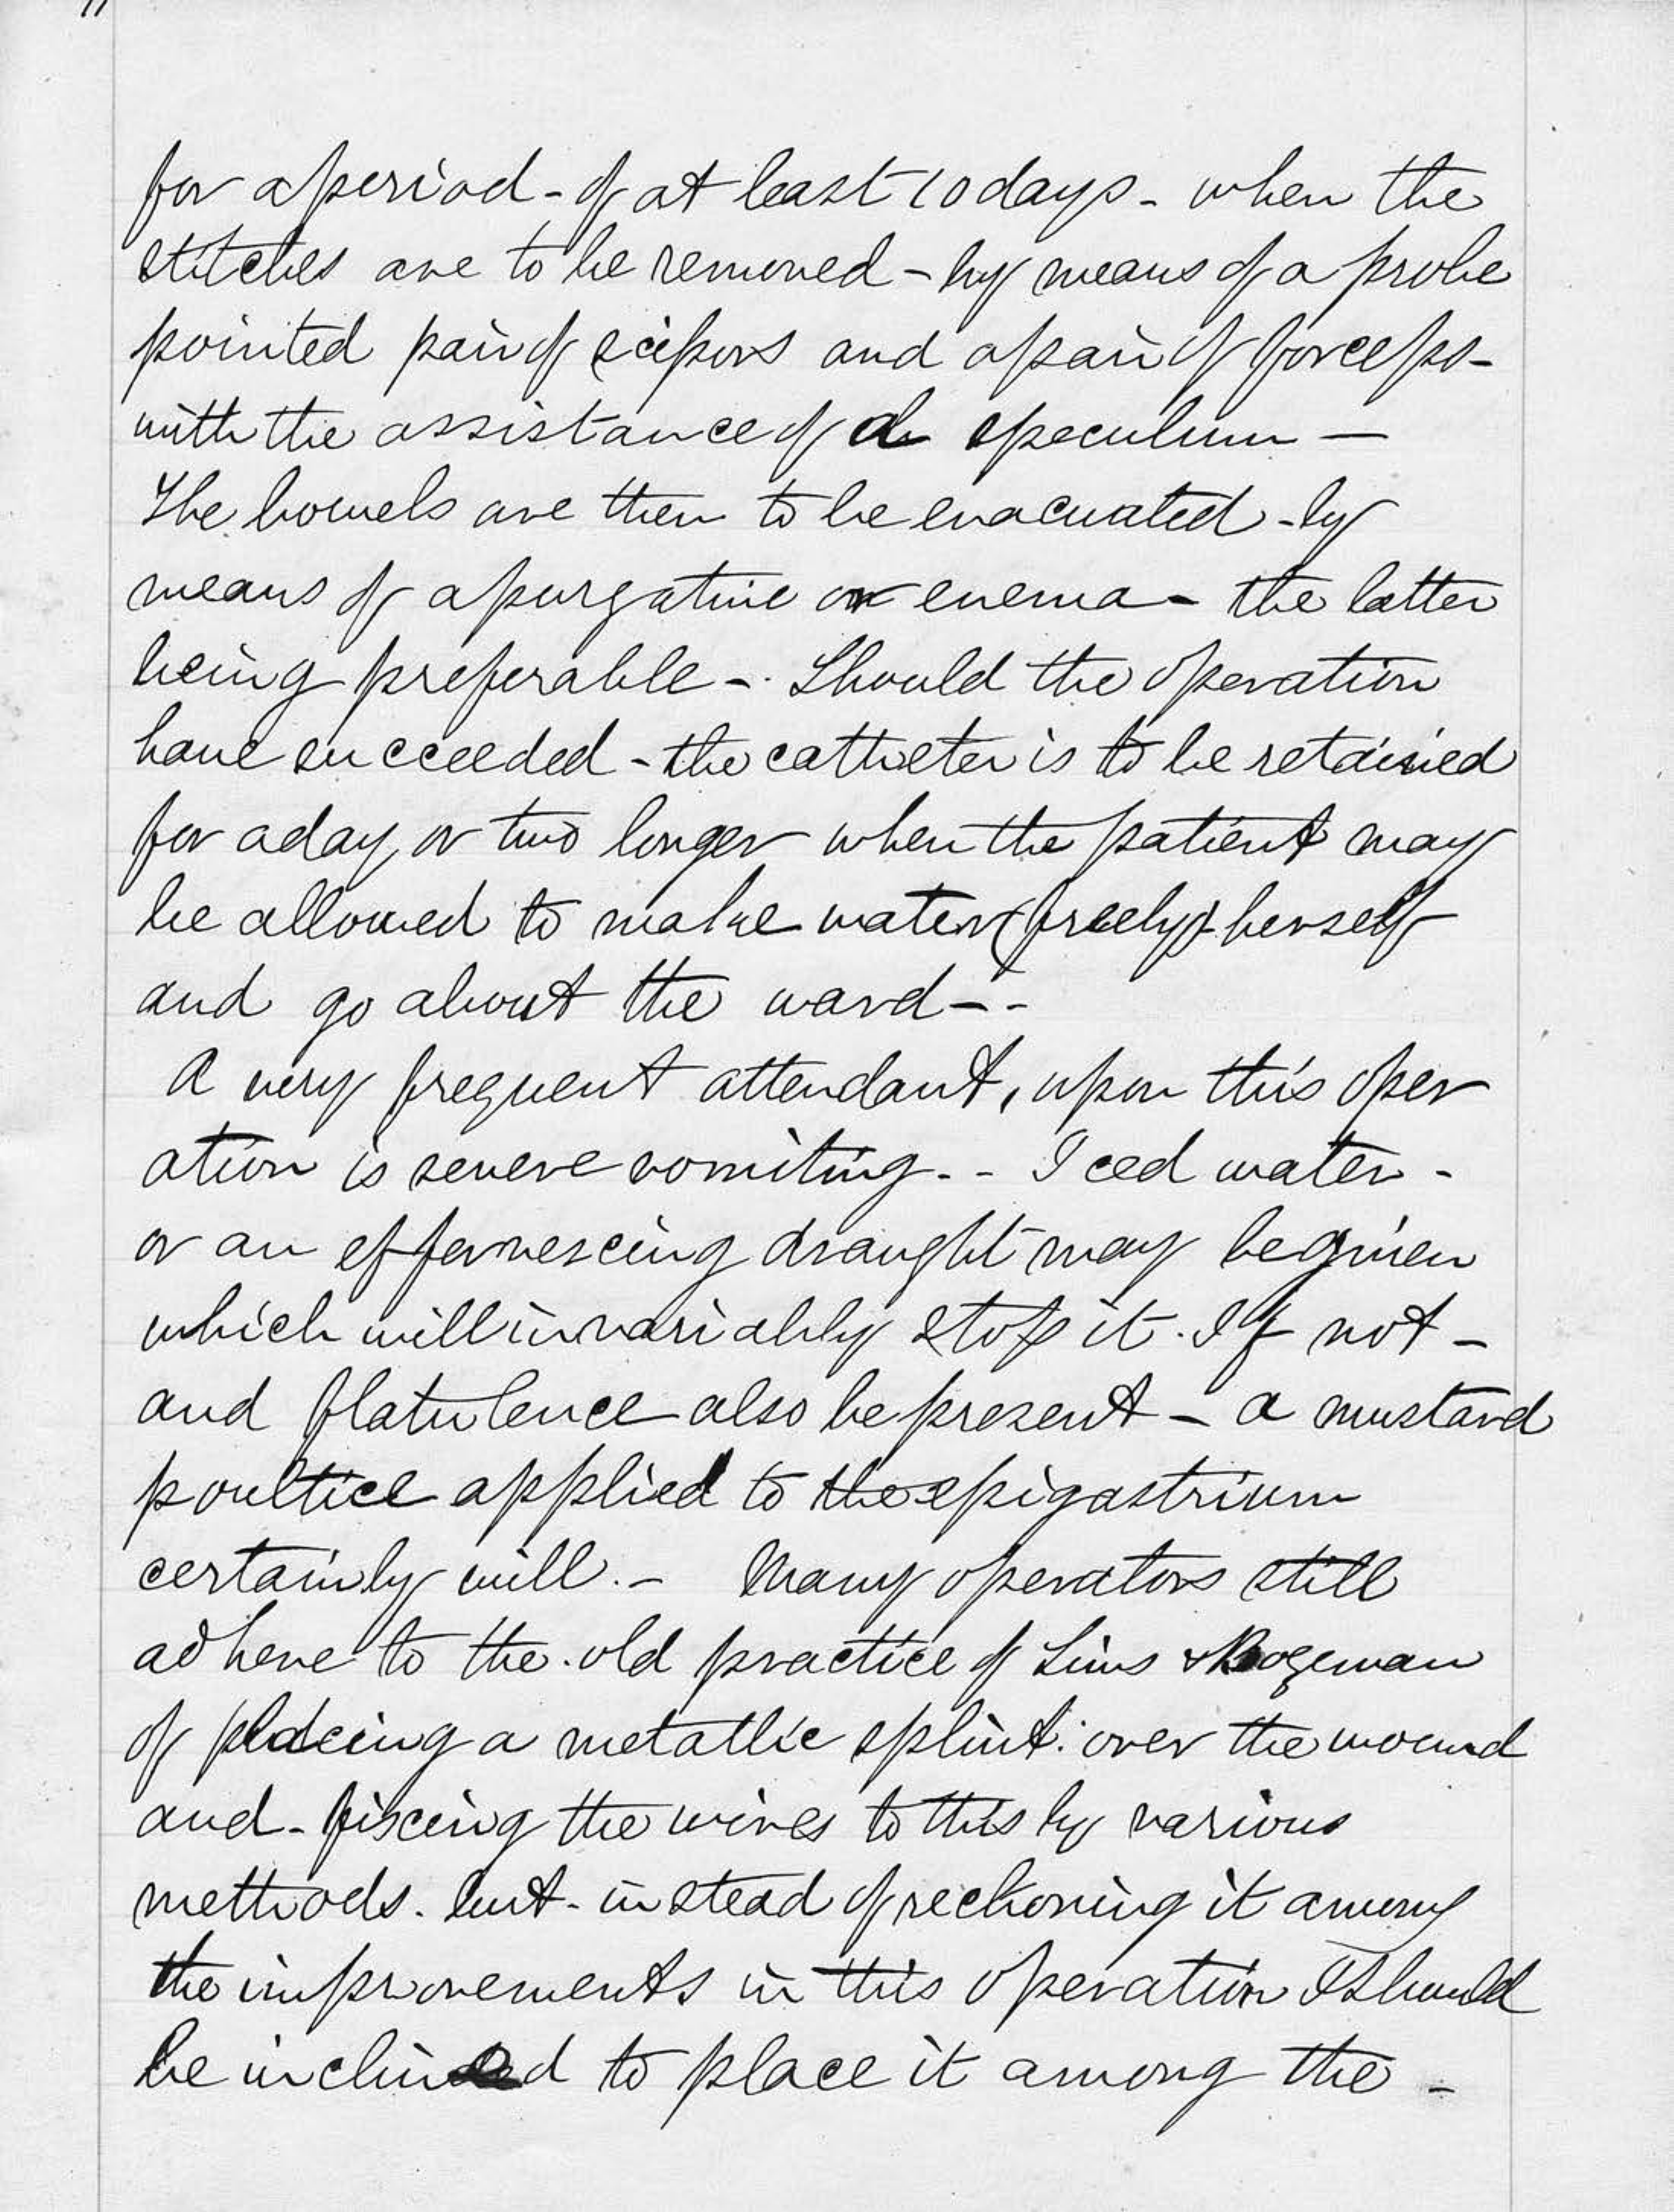 for a period - of at least 10 days - when the
stitches are to be removed - by means of a probe
pointed pair of scissors and a pair of forceps -
with the assistance of a speculum —
The bowels are then to be evacuated - by
means of a purgative or enema - the latter
being preferable -. Should the operation
have succeeded - the catheter is to be retained
for a day, or two longer when the patient may
be allowed to make water (freely) herself
and go about the ward - -
A very frequent attendant, upon this oper
ation is severe vomiting. - Iced water -
or an effervescing draught may be given
which will invariably stop it. If not -
and flatulence also be present - a mustard
poultice applied to the epigastrium
certainly will. - Many operators still
adhere to the old practice of Sims & Bozeman
of placing a metallic splint over the wound
and - fixing the wires to this by various
methods. but - instead of reckoning it among
the improvements in this operation I should
be inclined to place it among the -